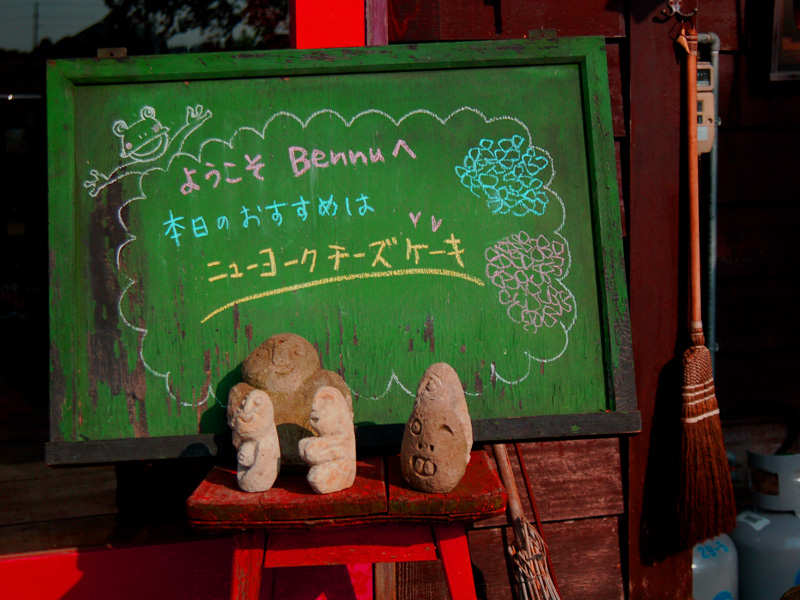 ようこそ Bennuへ
本日のおすすめは
ニューヨークチーズケーキ